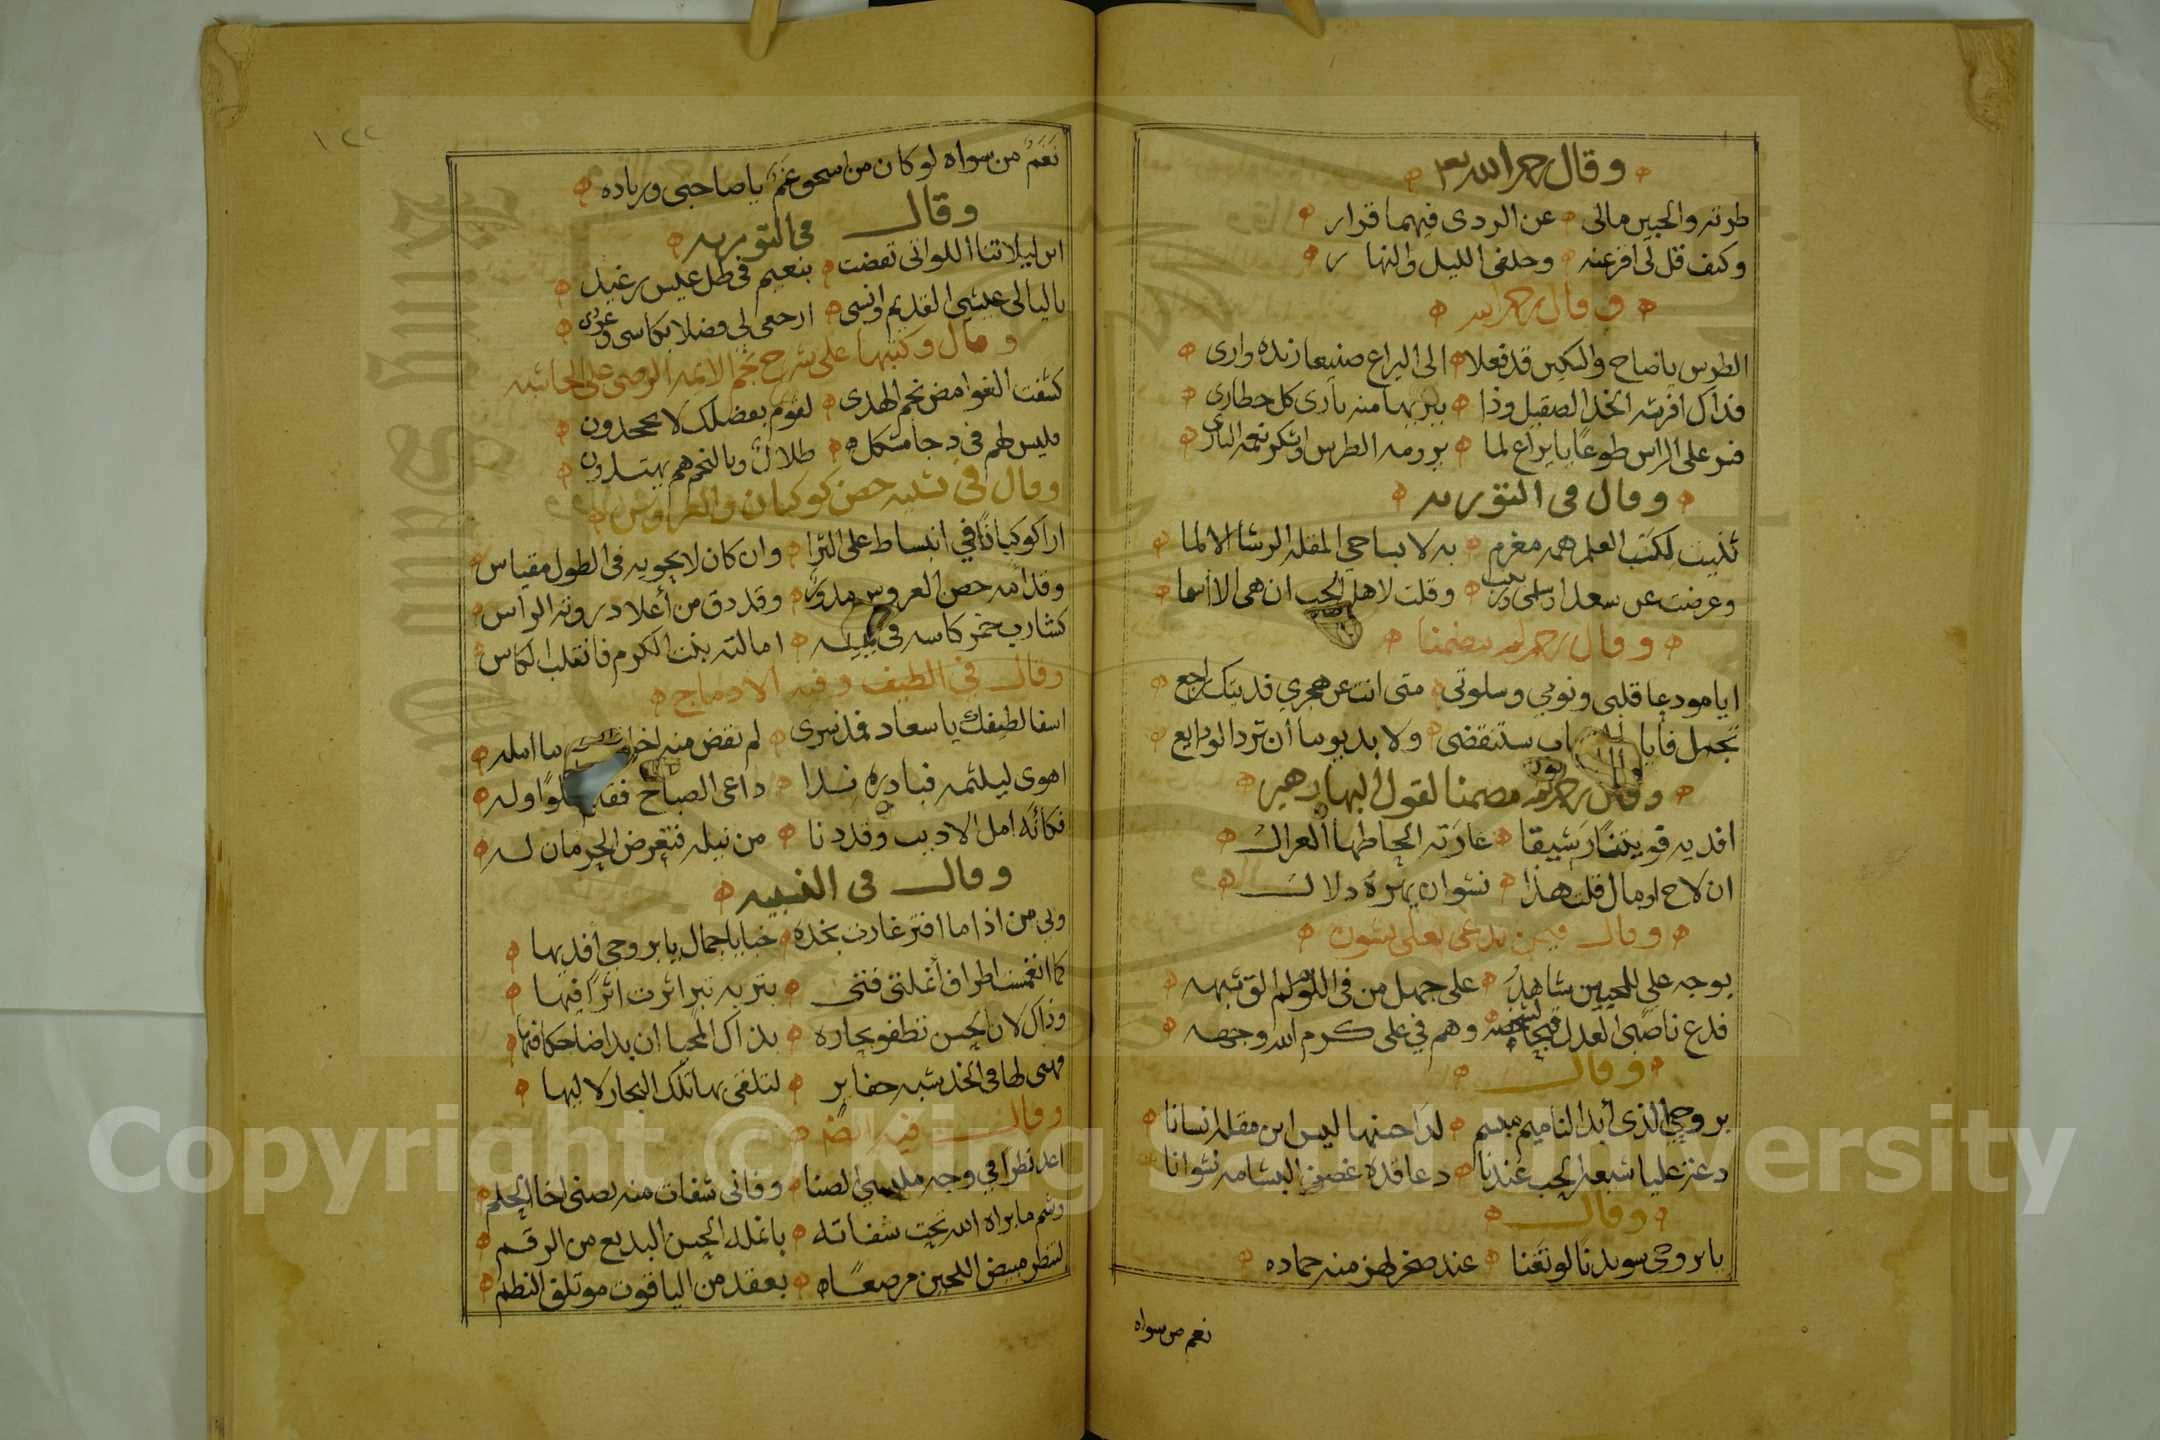 وقال رحمه الله تعه
طرته والجبين مالى عن الردى فيهما قرار
وكيف قل لى افر عنه وحلفى الليل والنهار
وقال رحمه الله
الطرس ياصاح والسكين قد فعلا الى اليراع صنيعا زنده وارى
فذاك افرشه الخد الصقيل وذا يبريها منه بارى كل خطارى
فسر على الراس طوعا يا يراع لما برومه الطرس اوشكر نعمة البارى
وقال فى التوريه
ثنيت لكتب العلم همه مغرم به لا بساجى المقله الرشا الالما
وعرضت عن سعدا وسلمى وزينب وقلت لاهل الحب ان هى الا اسما
وقال رحمه الله مضمنا
ايا مودعا قلبى ونومي وسلوتى متى انت عن هجري فديتك راجع
تجمل فايا ستنقضى ولا بد يوما أن ترد الودايع
وقال رحمه الله مضمنا لقول البها زهير
افديه قويتنا رشيقا غارته الحاظها الغزال
ان لاح او مال قلت هذا نشوان يهزه دلال
وقال فيمن تدعى بعلى بشوت
بوجه علي للمحبين شاهد على جهل من فى اللوم لم الق شبهه
فدع ناصبى العدل وهم في على كرم الله وجهه
وقال
بروحي الذى أبدا لنا ميم مبسم لدا حسنها ليس ابن مقلة انسانا
دعته عليا شيعة الحب عندنا دعا قده غصن البشامه نشوانا
وقال
يا بروحى سويدنا لو تغنا عند صخر لهز منه جماده
نعم من سواه
١٢٢
نغم من سواه لو كان من اسحو غم يا صاحبى وزياده
وقال فى التوريه
اين ليلاتنا اللواتى تقضت بنعيم فى ظل عيش رغيد
يا ليالى عيشي القديم اونسى ارجعى لى فضلا بكاسى وعودى
وقال وكتبها على شرح نجم الائمه الرضى على الحاشيه
كشفت الغوامض نجم الهدى لقوم بفضلك لا يجحدون
فليس لهم فى دجا مشكل ضلال وبالنجم هم يهتدون
وقال فى تشبيه حصن كوكبان والعروس
ارا كوكبانا في انبساط على الثرا وان كان لا يحويه فى الطول مقياس
وقدامه حصن العروس مدور وقد دق من أعلا ذروته الراس
كشارب خمر كاسه فى يمينه امالته بنت الكرم فانقلب الكاس
وقال فى الطيف وفيه الادماج
اسفا لطيفك يا سعاد فمذ سرى لم نقض منه ما امله
اهوى ليلثمه فبادره ندا داعى الصباح
فكانه امل الاديب وقد دنا من نيله فتعرض الحرمان له
وقال فى التشبيه
وبي من اذا ما افتر غارت بخده خبايا جمال يا بروحي أفديها
كما انغمست اطراف أنملتى فتى بتربه تبر اثرت اثرا فيها
وذاك لان الحسن تطفو بحاره بذاك المحيا ان بدا ضاحكا فيها
فهى لها فى الخد شبه حفاير لتلقى بها تلك البحار لاليها
وقال فيه ايضا
اعد نظرا في وجه وفانى شفات منه نصنى اخا الحلم
وشم ما براه الله تحت شفاته بانمله الحسن البديع من الرقم
لتنظر مبيض اللجين مرصعا بعقد من الياقوت موتلق النظم
Copyright © King Saud University